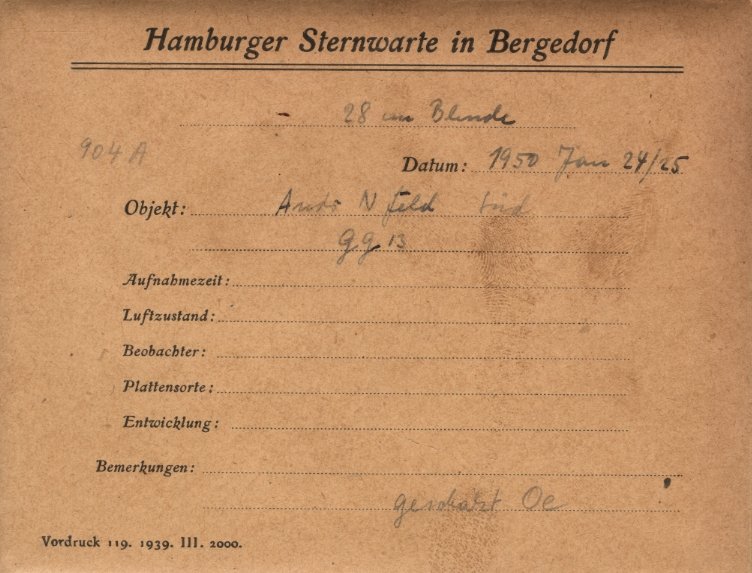 Hamburger Sternwarte in Bergedorf
28 cm Blende
904 A
Datum: 1950 Jan 24/25
Objekt: Andr N feld Süd
gg 13
Aufnahmezeit:
Luftzustand:
Beobachter:
Plattensorte:
Entwicklung:
Bemerkungen:
geschätzt Oe
Vordruck 119. 1939. III. 2000.